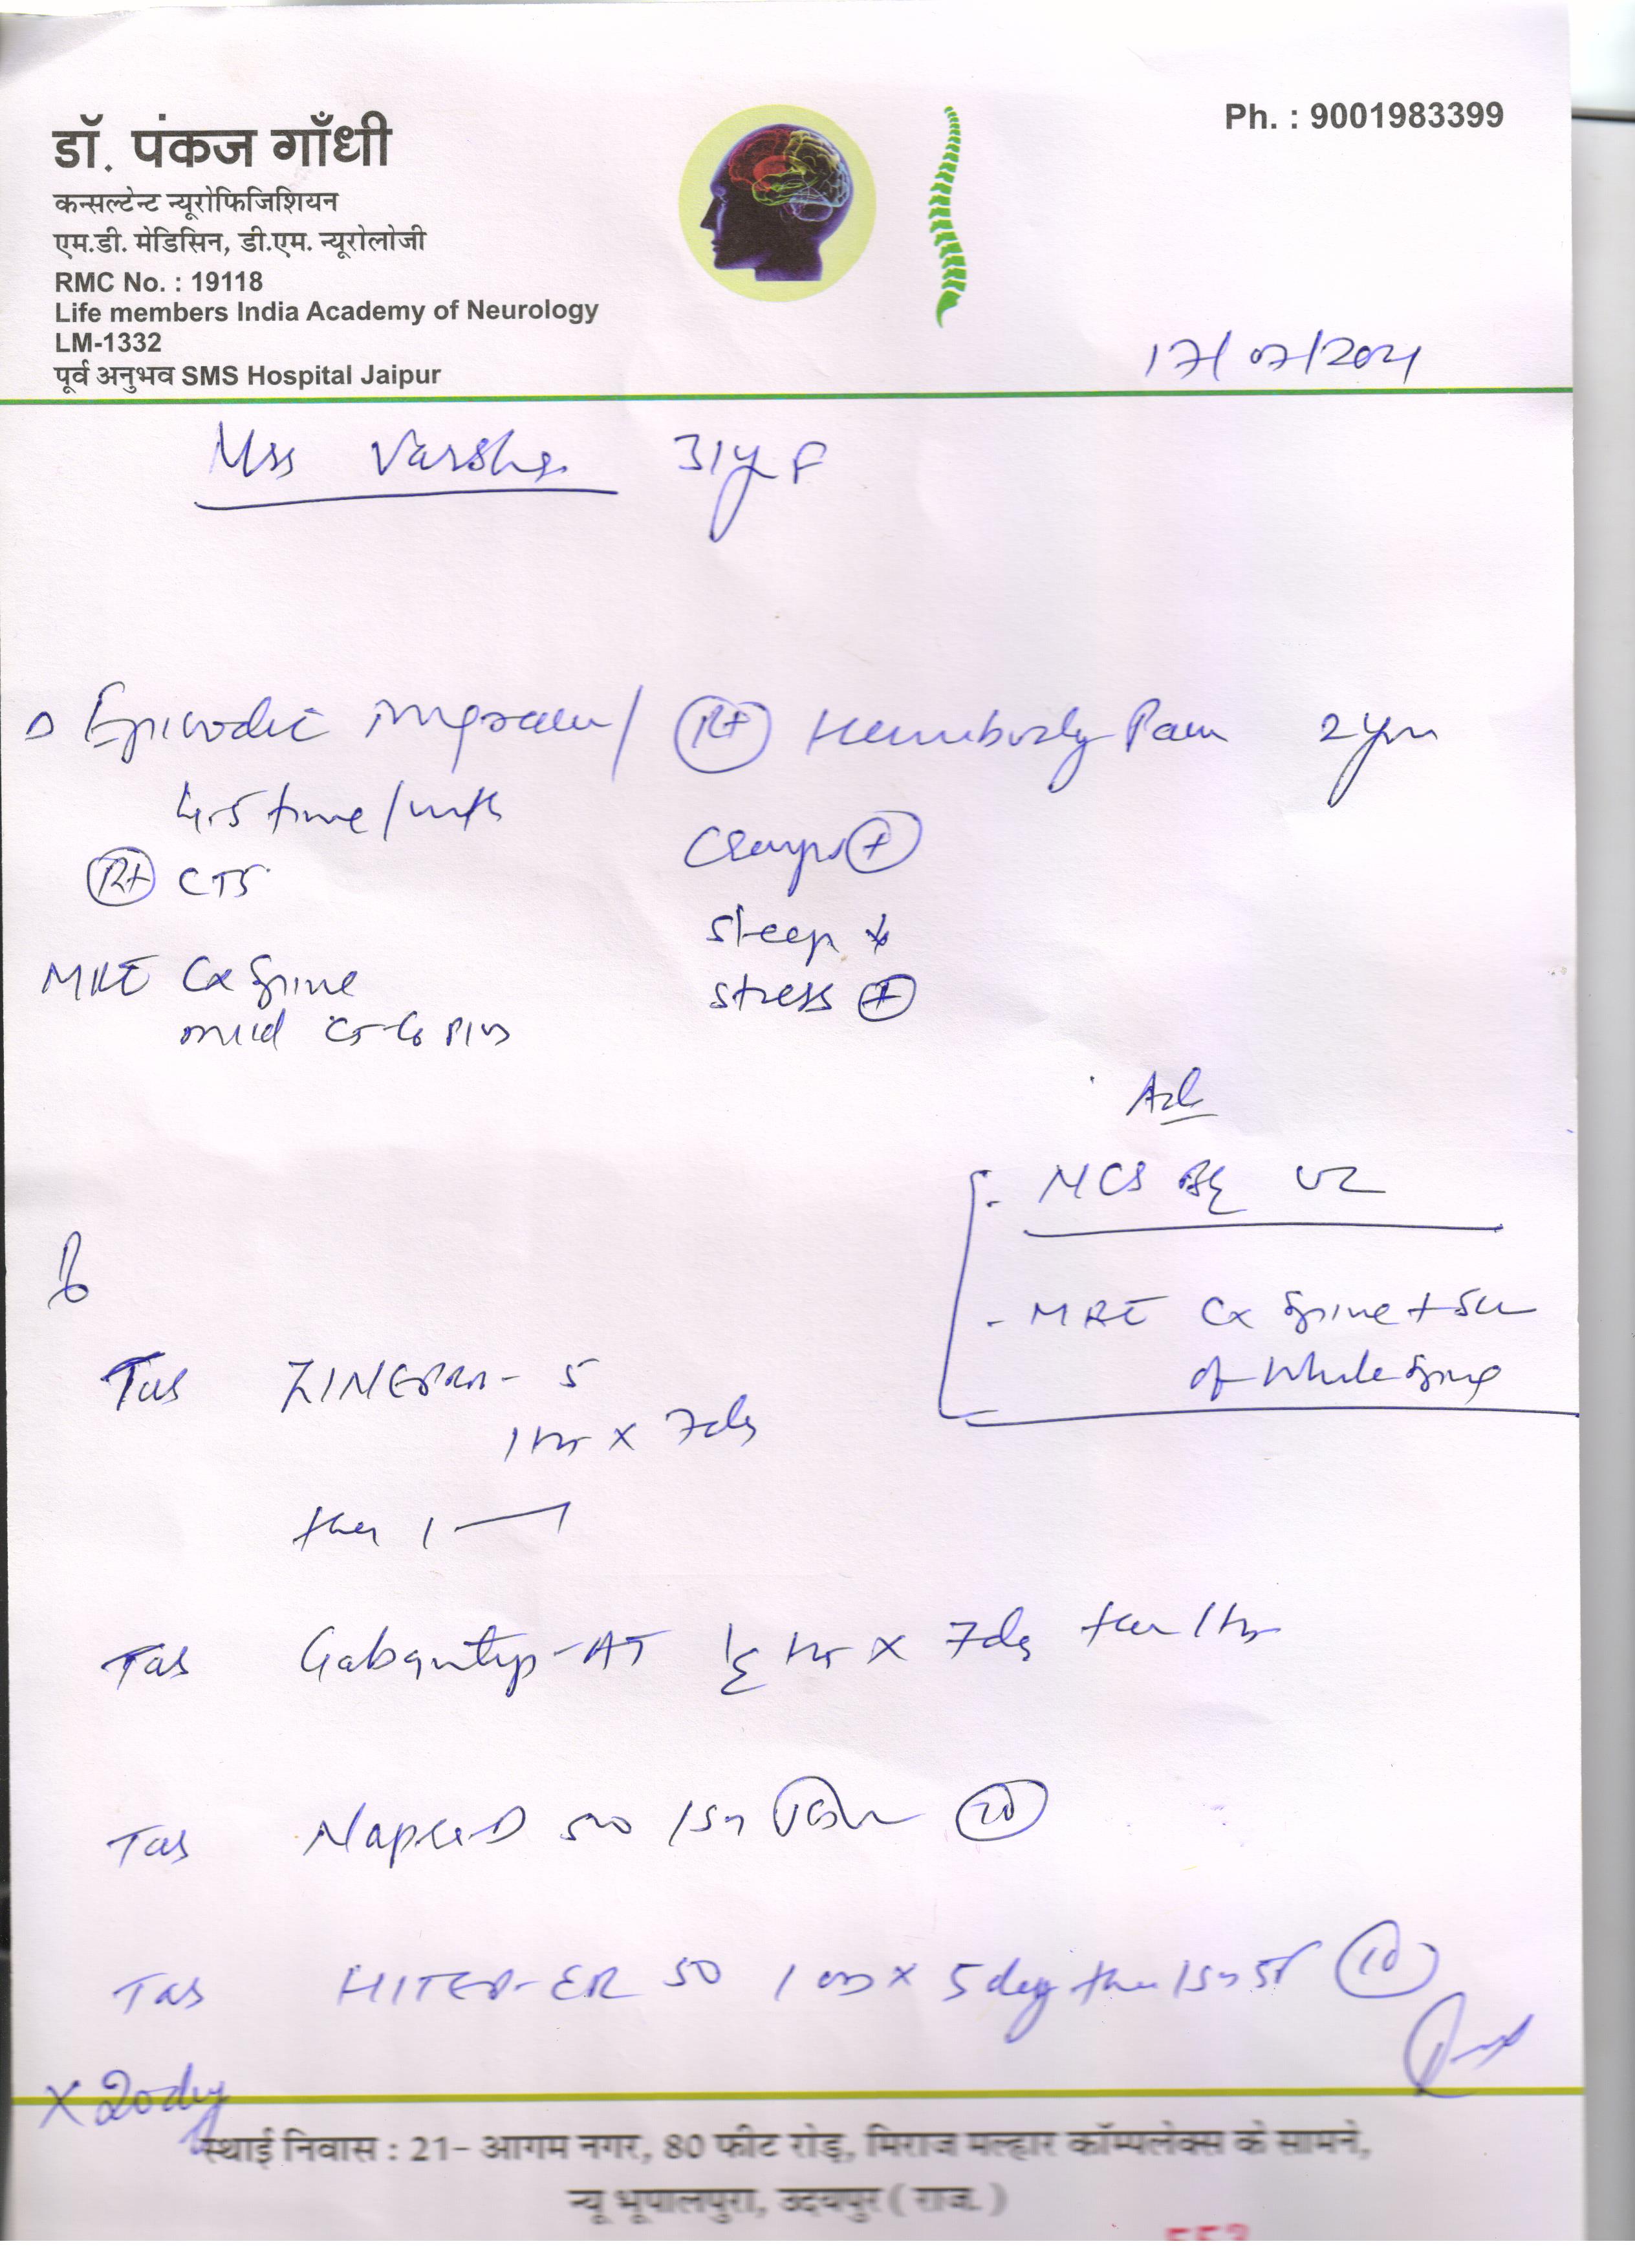 डॉ. पंकज गाँधी
कन्सल्टेन्ट न्यूरोफिजिशियन
एम.डी. मेडिसिन, डी.एम. न्यूरोलोजी
RMC No. : 19118
Life members India Academy of Neurology
LM-1332
पूर्व अनुभव SMS Hospital Jaipur
Ph. : 9001983399
17/07/2021
Mrs Varsha 31y F
Episodic migraine / Rt Hemibody Pain 2 yrs
4-5 time/mth
Rt CTS
MRI Cx Spine
mild C5-C6
Cramps +
sleep
stress +
Ad
- NCS UL
- MRI Cx Spine + Scr
of Whole Spine
Tab - 5
1 hs x 7 dy
then 1 — 1
Tab Gabantip-AT ½ hs x 7 dy then 1 hs
Tab 500
Tab ER 50 1 od x 5 day then 10
x 20 day
स्थाई निवास : 21- आगम नगर, 80 फीट रोड़, मिराज मल्हार कॉम्पलेक्स के सामने,
न्यू भूपालपुरा, उदयपुर ( राज. )